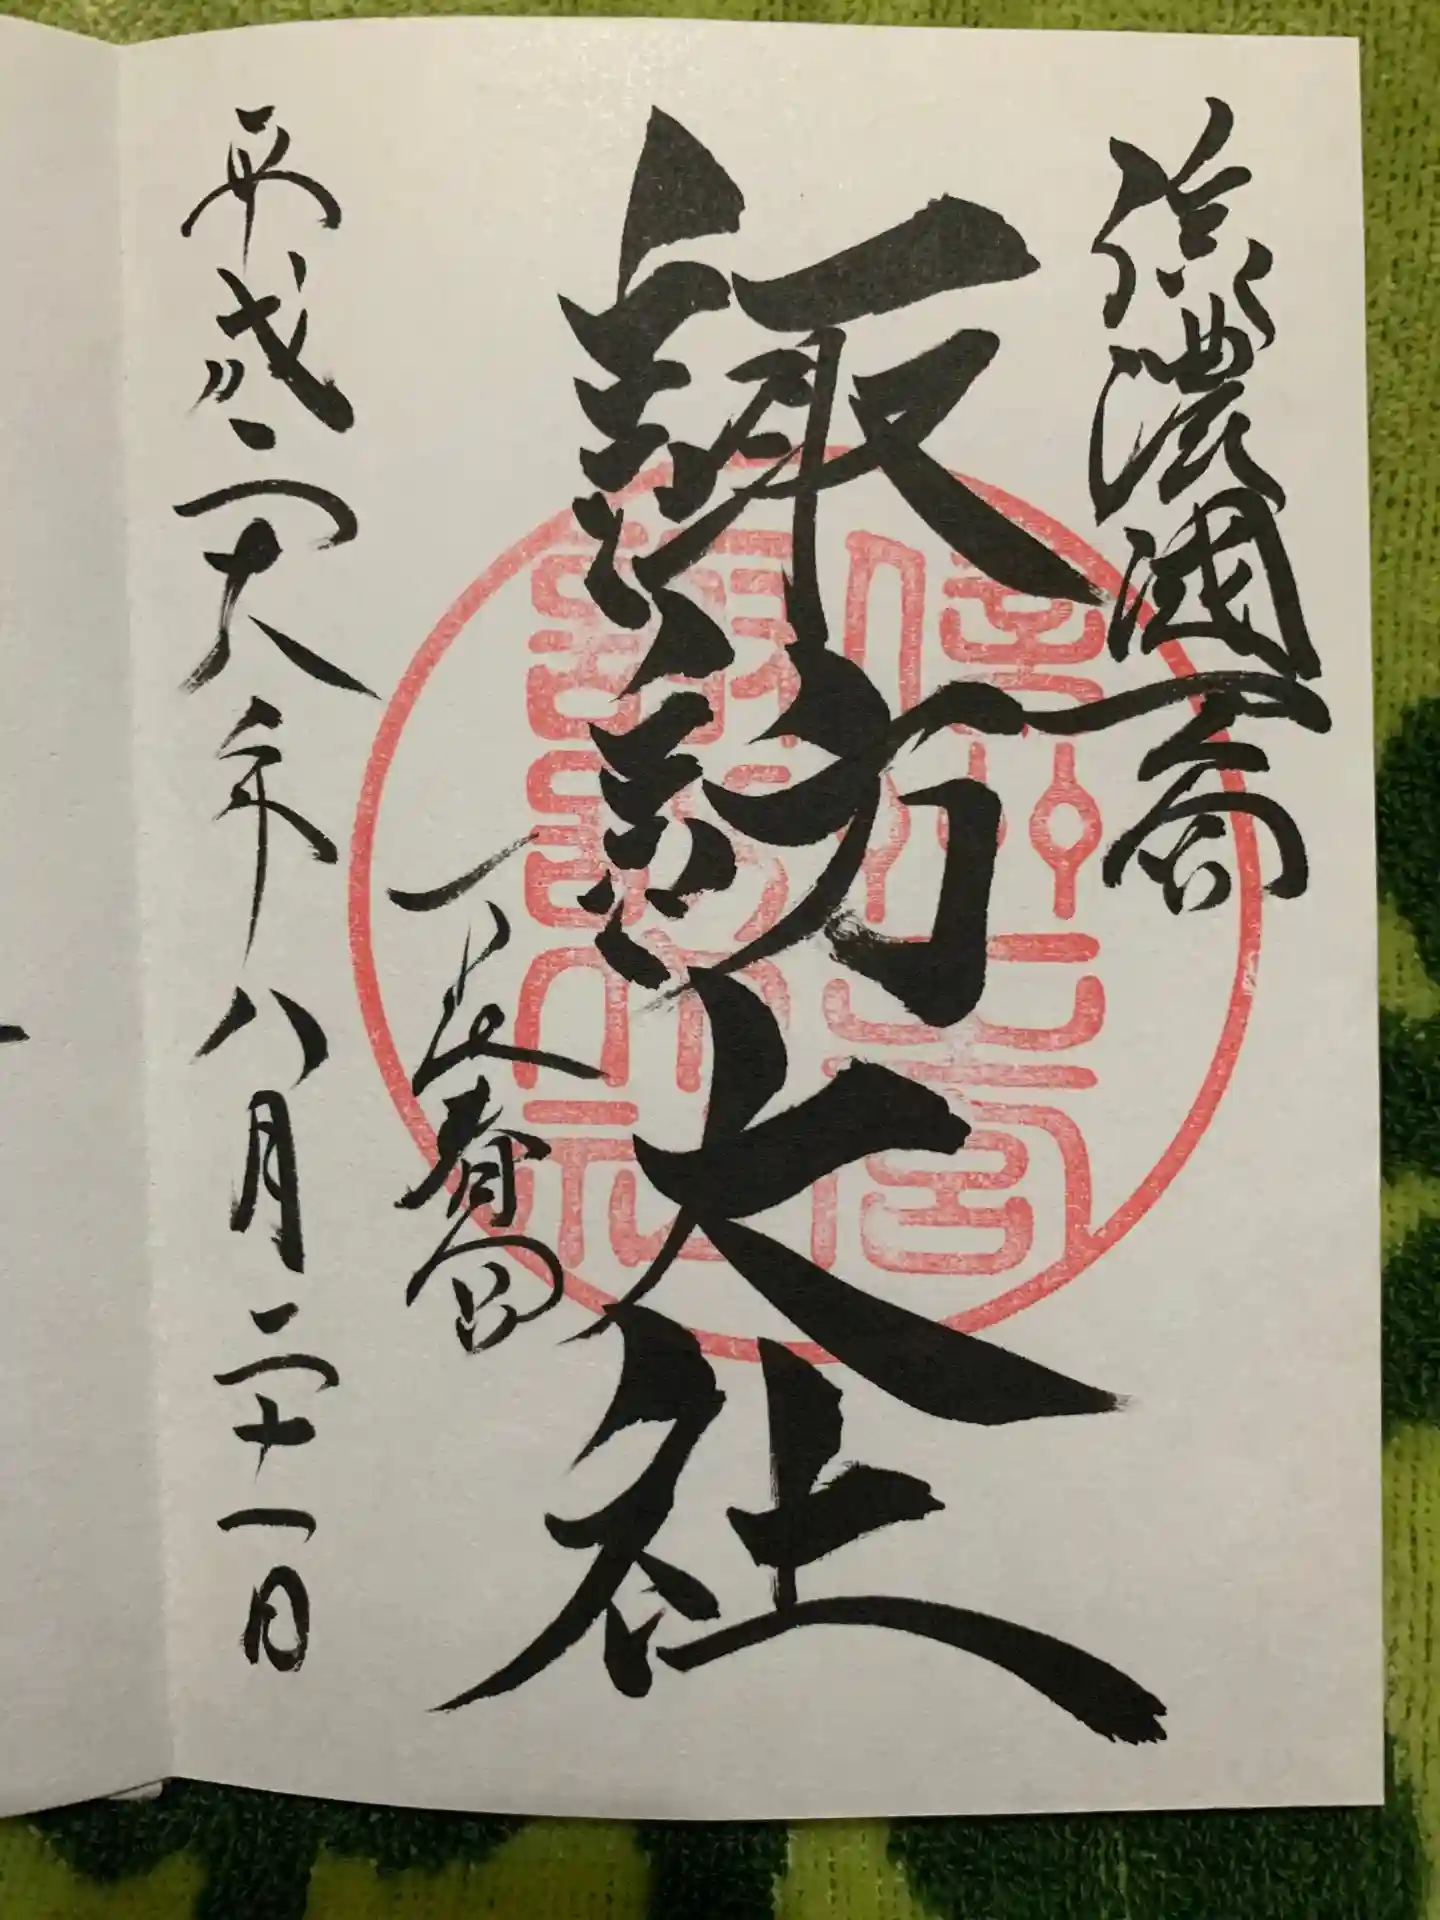 信濃國一宮
諏訪大社
下社春宮
平成二十八年八月二十一日
信州一之宮
諏訪大社